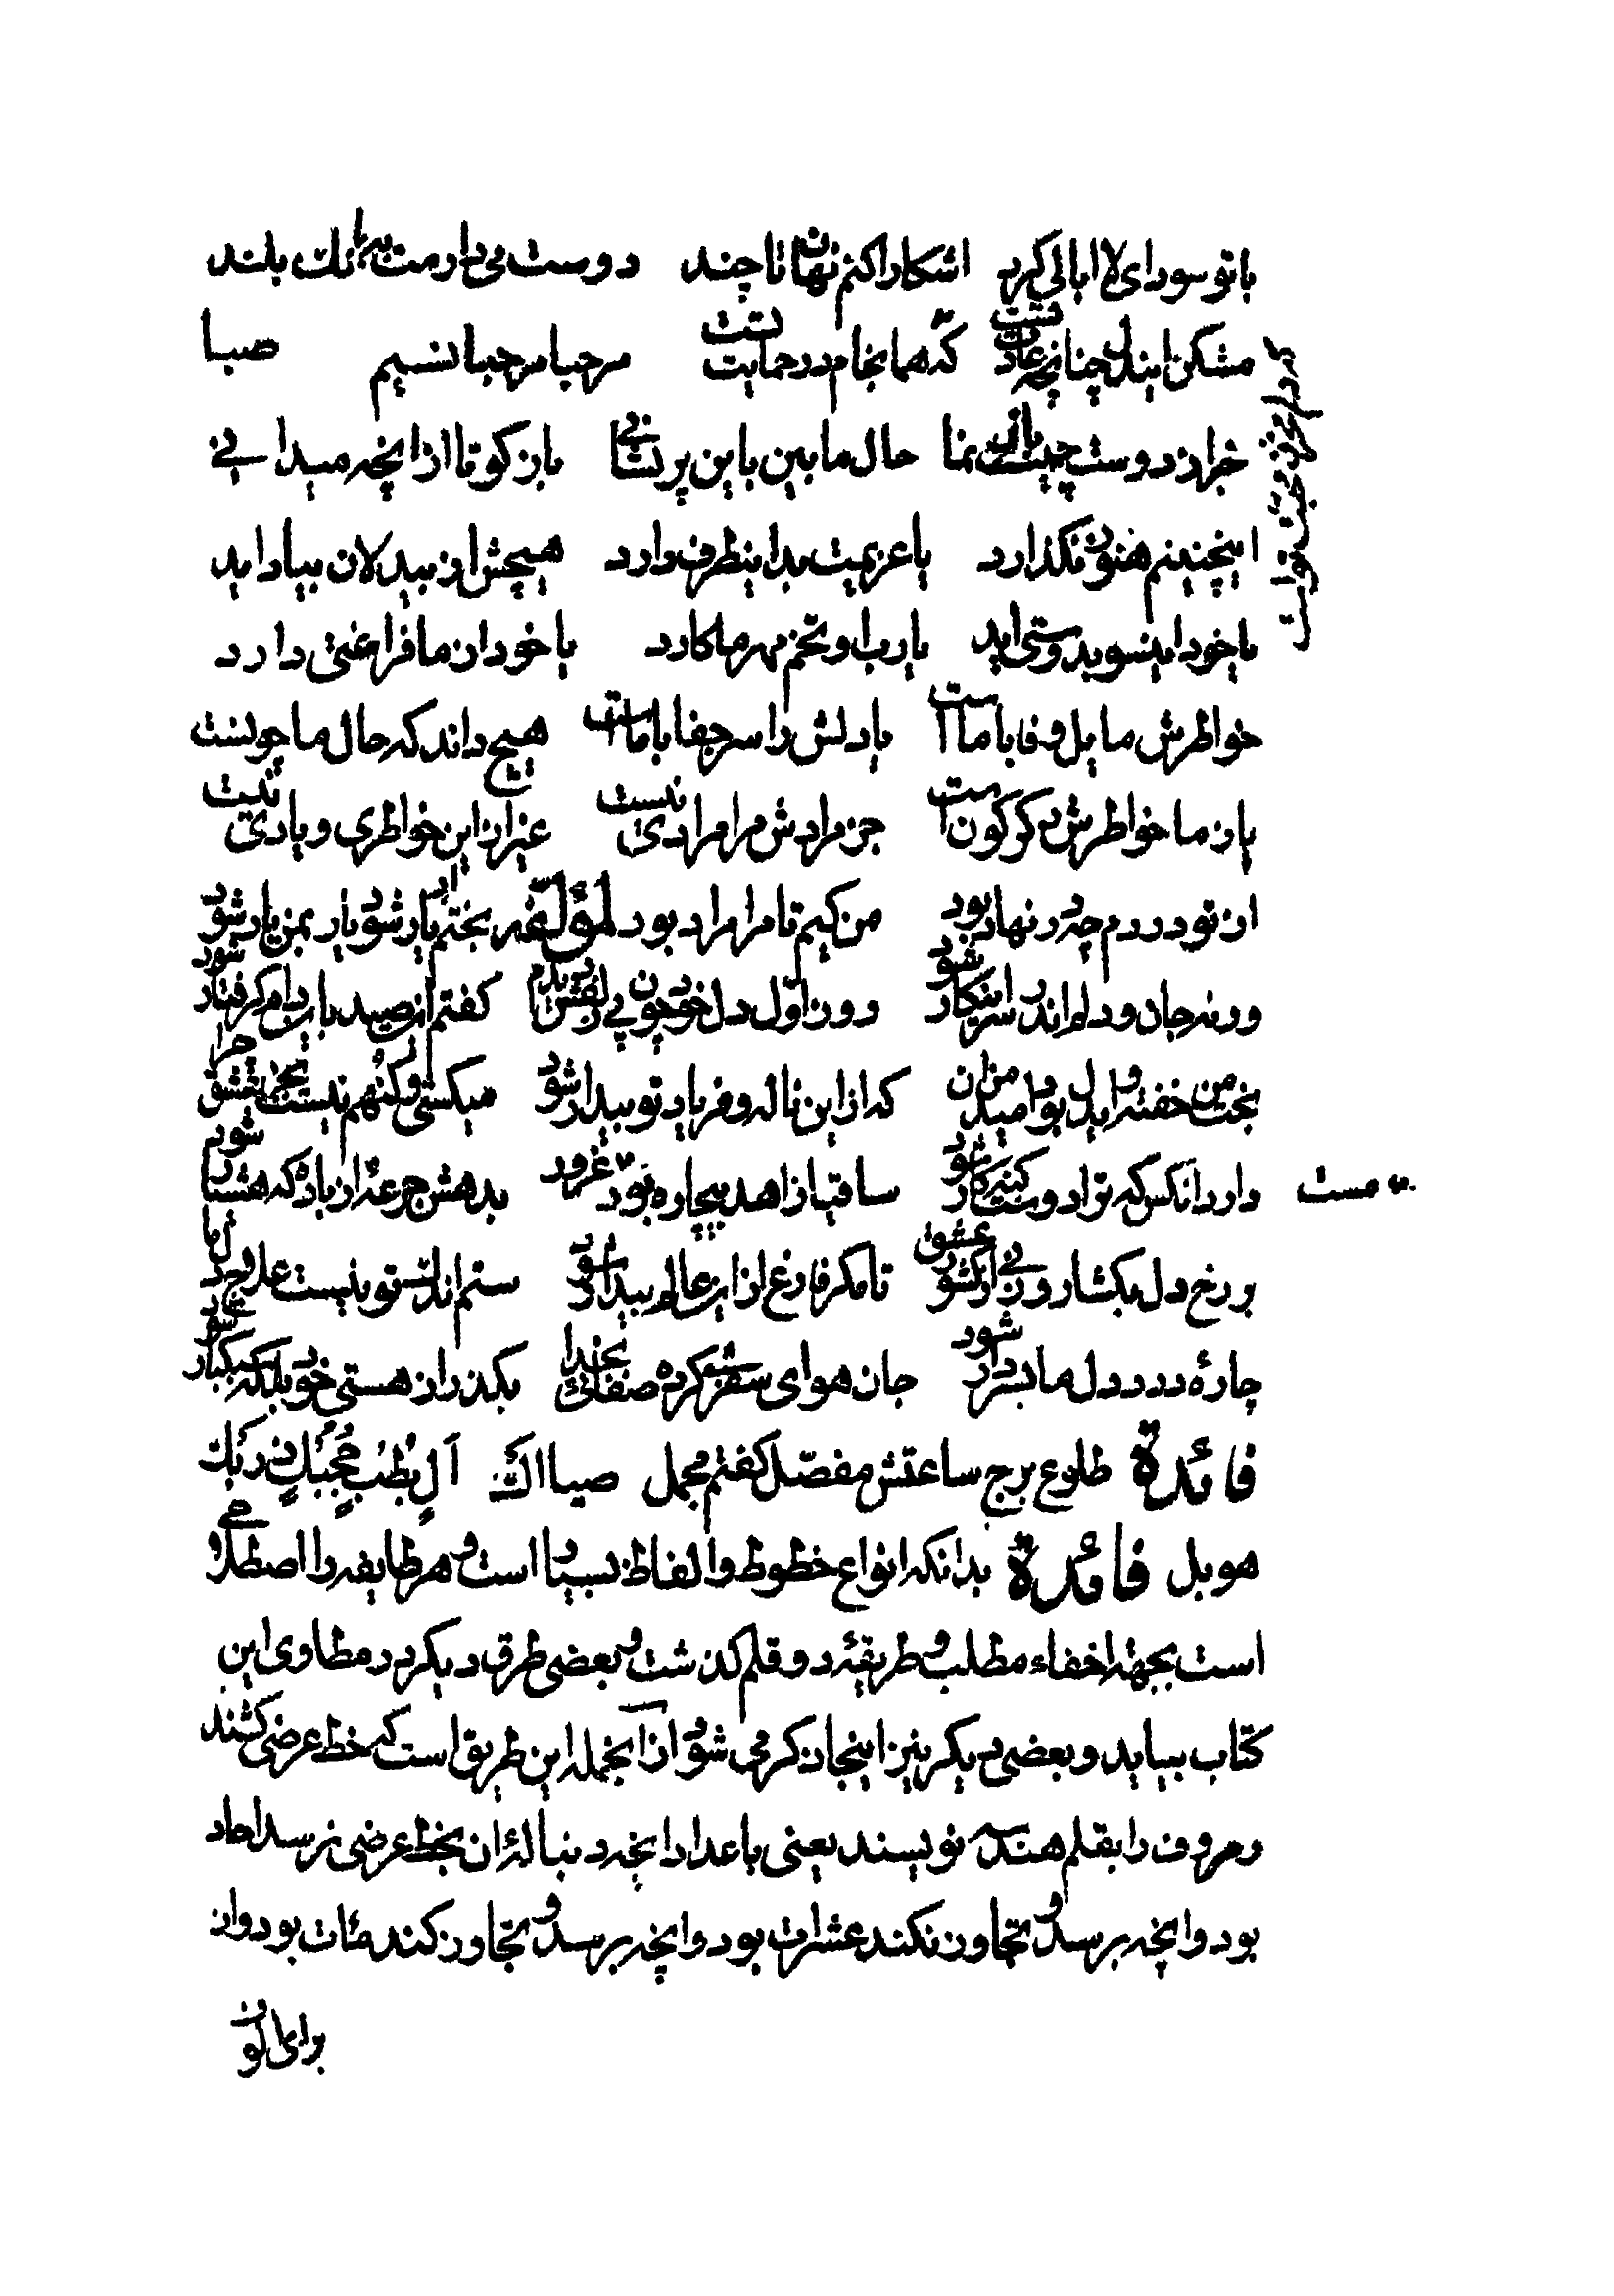 باتو سودای لاابالی کرد اشکارا کنم نهان تا چند دوست می دارمت ببانك بلند
مشکن ایندل چنانچه عادت تست که همانجام در حمایت تست مرحبا مرحبا نسیم صبا
خبر از دوست چیست باز نما حال ما بین باین پریشانی باز کو تا از انچه میدانی
اینچنینم هنوز نکذارد یا عزیمت بداینطرف دارد هیچش از بیدلان بیاد اید
یا خود اینسو بدوستی اید یارب او تخم مهر ما کارد یا خود از ما فراغتی دارد
خواطرش مایل وفا با ماست یا دلش را سر جفا با ماست هیچ داند که حال ما چونست
یا ز ما خواطرش دکرکون است جز مرادش مرا مرادی نیست غیر از این خواطری و یادی نیست
از تو در دم چه در نهاد بود من کیم تا مرا مراد بود لمؤلّفه بختم ار یار شود یار بمن یار شود
ورنه جان و دلم اندر سر اینکار شود روز اوّل دل خود چون پی زلفش دیدم کفتم از صید باین دام کرفتار شود
بخت من خفته و ایدل بود امید من ان که از این ناله و فریاد تو بیدار شود میکشی و کنهم نیست بجز عشق چرا
دارد انکس که ترا دوست کنه کار شود ساقیا زاهد بیچاره نبود مست غرود بدهش جرعهٔ از باده که هشیار شود
بر رخ دل بکشا روزنی از کشور عشق تا مکر فارغ از این عالم بیدار شود ستم اندیشه تو نیست علاج دل ما
چارهٔ درد دل ما بسر دار شود جان هوای سفری کرده صفائی بخدا بکذر از هستی خود بلکه سبکبار شود
فائدة طلوع برج ساعتش مفصّل کفتم مجمل صیااك آلٍ بُطُبٍ مُجُبُبُكٍ دزدبك
هویل فائدة بدانکه انواع خطوط و الفاظ بسیار است و هر طایفه را اصطلاحی
است بجهة اخفاء مطلب و طریقهٔ دو قلم کذشت و بعضی طرق دیکر در مطاوی این
کتاب بیاید و بعضی دیکر نیز اینجا ذکر می شود از انجمله این طریق است که خط عرضی کشند
و حروف را بقلم هندسه نویسند یعنی با عدد انچه دنبالهٔ ان بخط عرضی نرسد احاد
بود و انچه برسد و تجاوز نکند عشرات بود و انچه برسد و تجاوز کند مئات بود و ان
برای الوف
مست